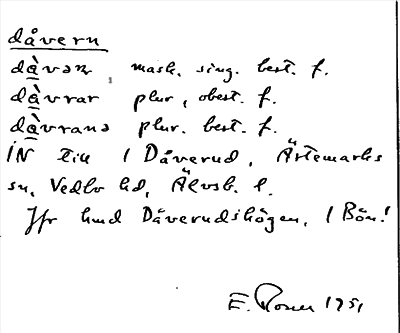 dåvern
dàvən, mask. sing. best. f.
dàvrar plur, obest. f.
dàvrana plur. best. f.
IN till 1 Dåverud, Ärtemarks
sn, Vedbo hd, Älvsb. l.
Jfr hmd Dåverudshögen, 1 Bön!
E. 1951